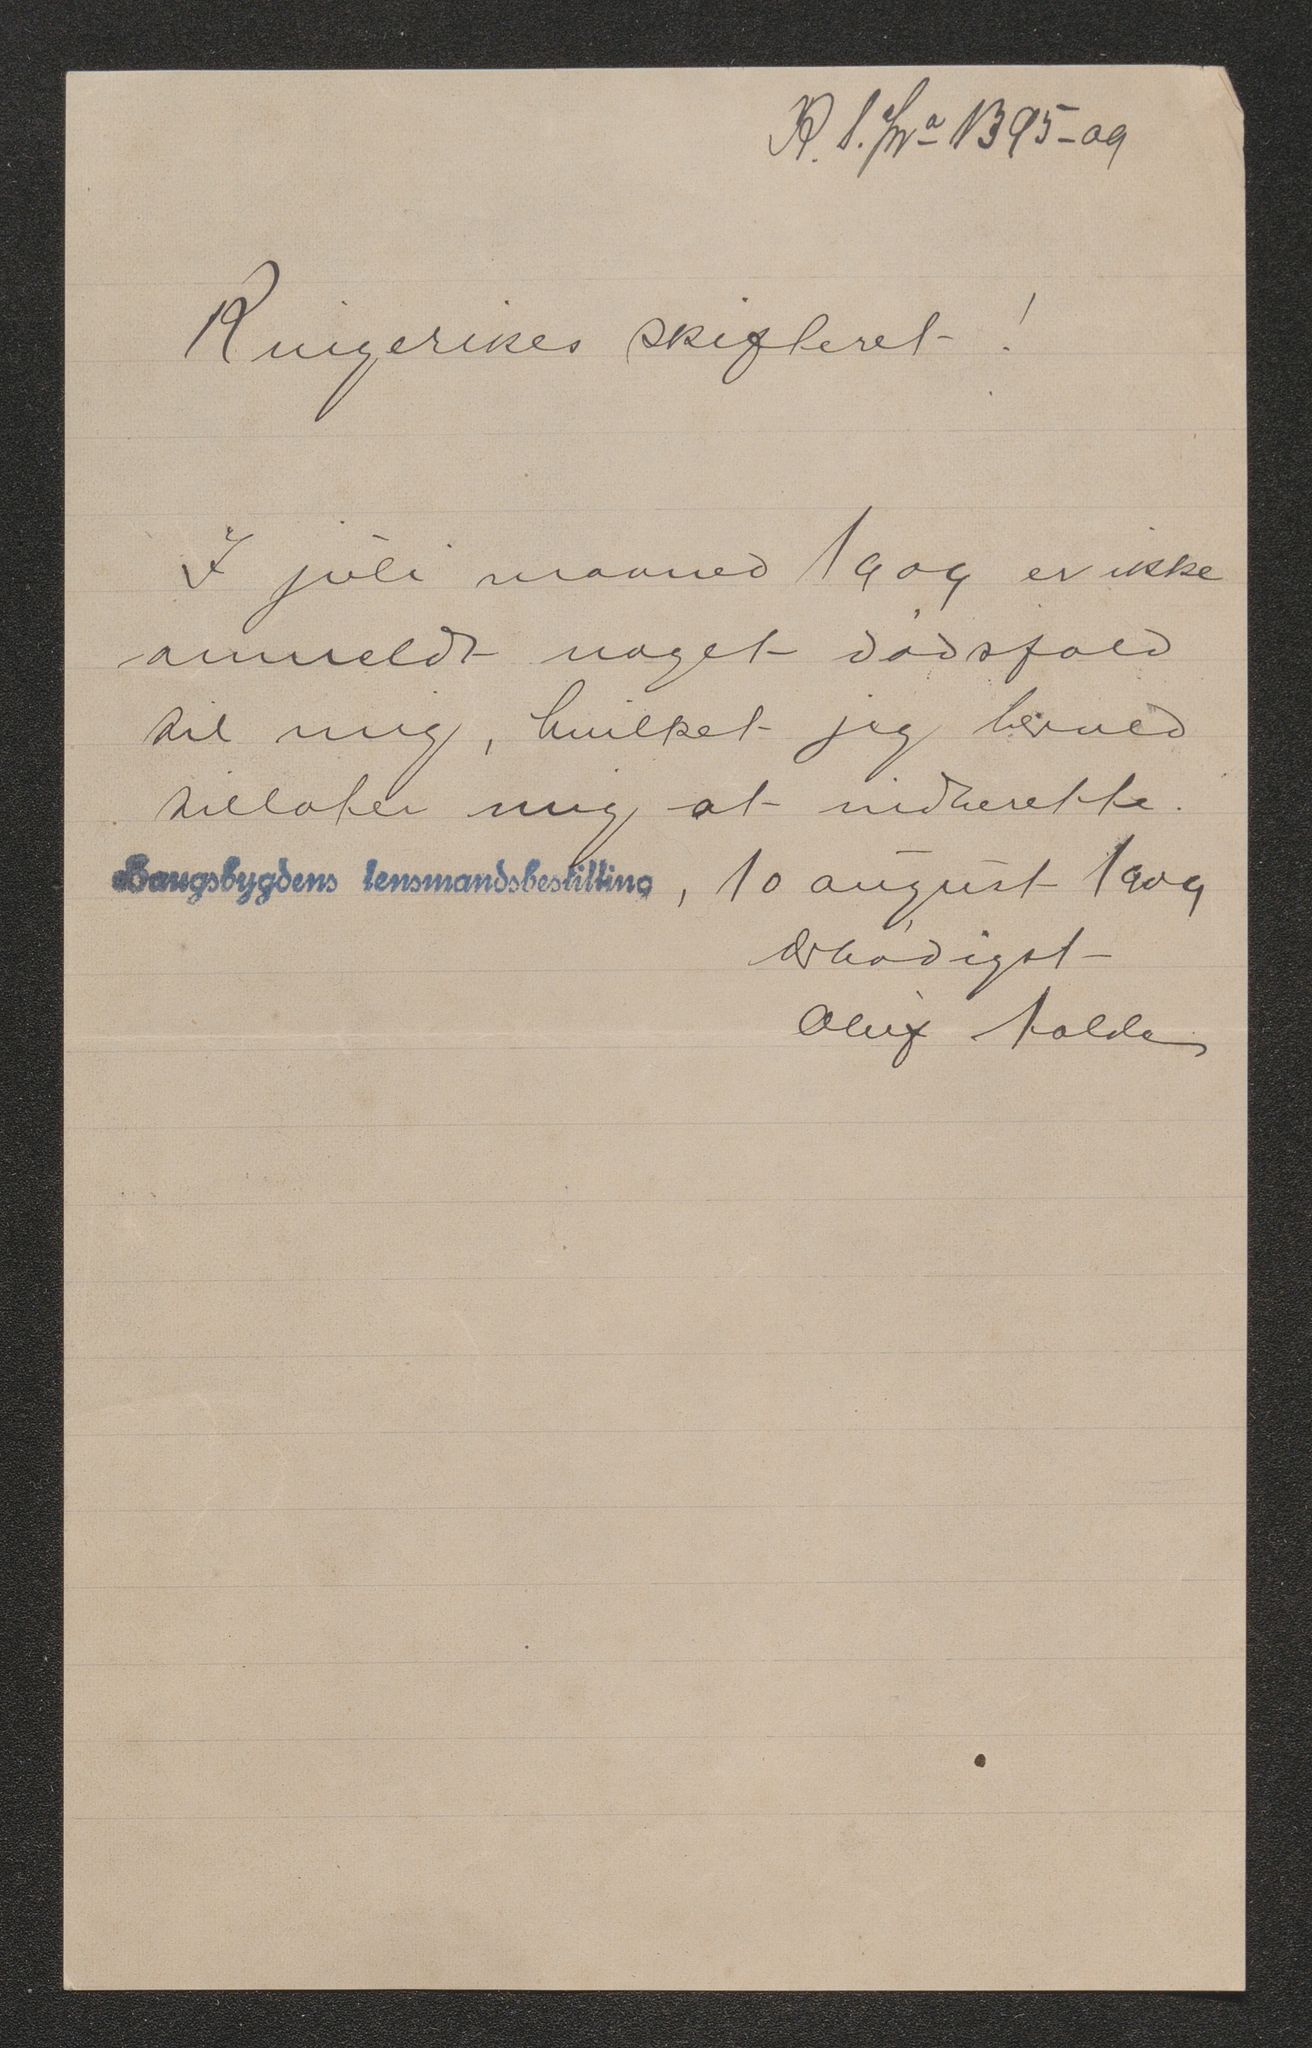 R. S. No 1395-09
Ringerikes skifteret!
I juli maaned 1909 er ikke
anmeldt noget dødsfald
til mig, hvilket jeg herved
tillater mig at indberette.
Haugsbygdens lensmandsbestilling, 10 august 1909
Ærbødigst
Oluf